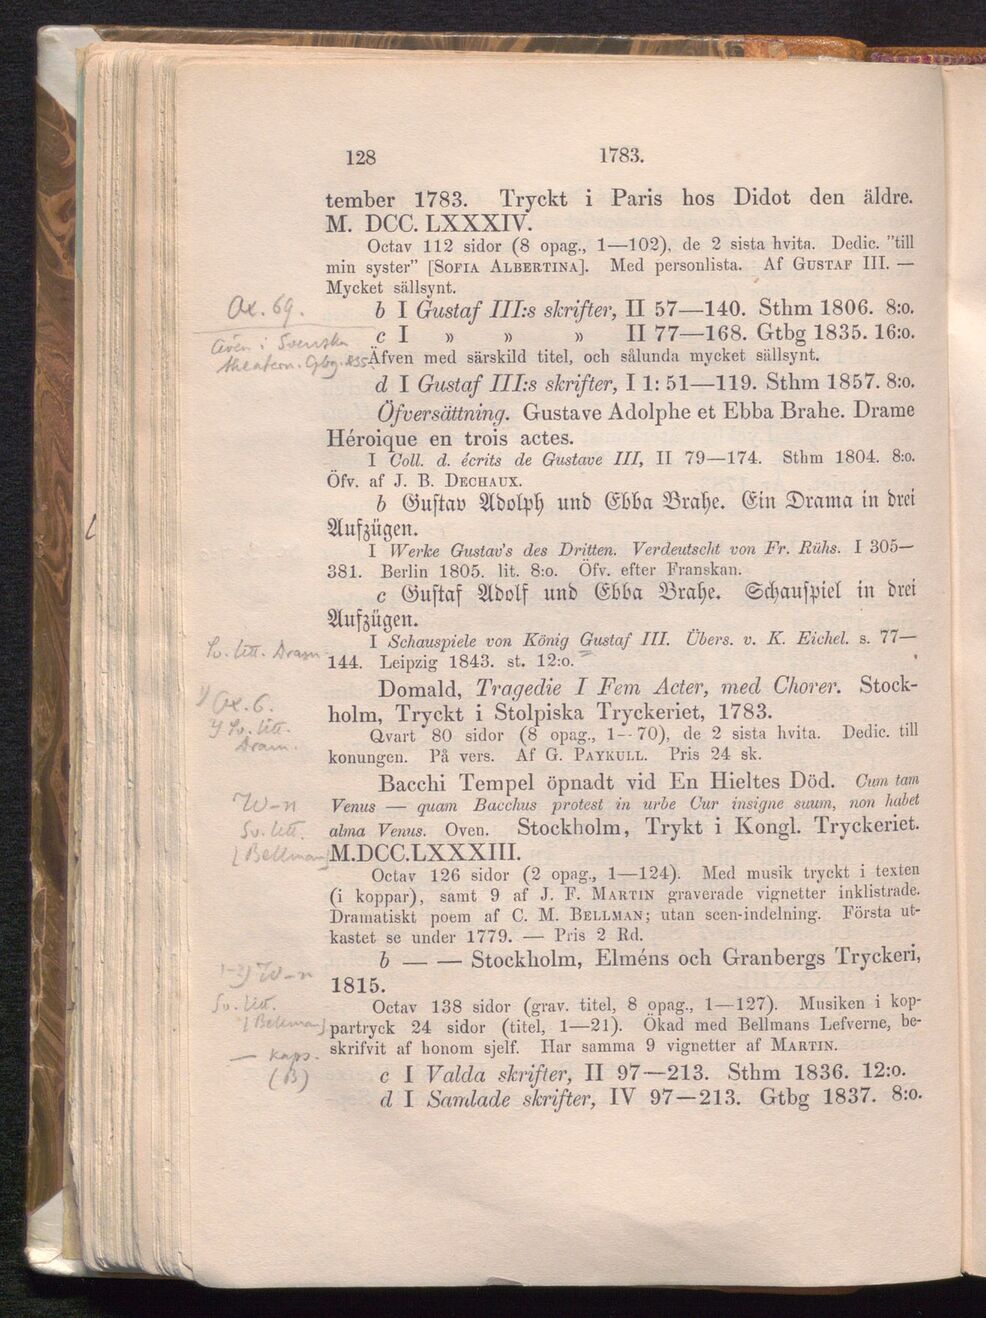 128 1783.
tember 1783. Tryckt i Paris hos Didot den äldre.
M. DCC. LXXXIV.
Octav 112 sidor (8 opag., 1—102), de 2 sista hvita. Dedic. "till
min syster" [Sofia Albertina]. Med personlista. Af Gustaf III. —
Mycket sällsynt.
Ox. 69.
b I Gustaf III:s skrifter, II 57—140. Sthm 1806. 8:o.
c I » » » II 77—168. Gtbg 1835. 16:o.
även i Svenska
theatern. Gbg. 835
Äfven med särskild titel, och sålunda mycket sällsynt.
d I Gustaf III:s skrifter, I 1: 51—119. Sthm 1857. 8:o.
Öfversättning. Gustave Adolphe et Ebba Brahe. Drame
Héroique en trois actes.
I Coll. d. écrits de Gustave III, II 79—174. Sthm 1804. 8:o.
Öfv. af J. B. Dechaux.
b Gustav Adolph und Ebba Brahe. Ein Drama in drei
Aufzügen.
I Werke Gustav's des Dritten. Verdeutscht von Fr. Rühs. I 305—
381. Berlin 1805. lit. 8:o. Öfv. efter Franskan.
c Gustaf Adolf und Ebba Brahe. Schauspiel in drei
Aufzügen.
I Schauspiele von König Gustaf III. Übers. v. K. Eichel. s. 77—
144. Leipzig 1843. st. 12:o.
Sv. litt. Dram
Domald, Tragedie I Fem Acter, med Chorer. Stock-
holm, Tryckt i Stolpiska Tryckeriet, 1783.
Qvart 80 sidor (8 opag., 1--70), de 2 sista hvita. Dedic. till
konungen. På vers. Af G. Paykull. Pris 24 sk.
1) Ox. 6.
2) Sv. litt.
Dram.
Bacchi Tempel öpnadt vid En Hieltes Död. Cum tam
Venus — quam Bacchus protest in urbe Cur insigne suum, non habet
alma Venus. Oven. Stockholm, Trykt i Kongl. Tryckeriet.
M.DCC.LXXXIII.
W-n
Sv. litt.
[Bellman]
Octav 126 sidor (2 opag., 1—124). Med musik tryckt i texten
(i koppar), samt 9 af J. F. Martin graverade vignetter inklistrade.
Dramatiskt poem af C. M. Bellman; utan scen-indelning. Första ut-
kastet se under 1779. — Pris 2 Rd.
b — — Stockholm, Elméns och Granbergs Tryckeri,
1815.
1-2) W-n
Sv. litt.
[Bellman]
Octav 138 sidor (grav. titel, 8 opag., 1—127). Musiken i kop-
partryck 24 sidor (titel, 1—21). Ökad med Bellmans Lefverne, be-
skrifvit af honom sjelf. Har samma 9 vignetter af Martin.
— kaps.
(B)
c I Valda skrifter, II 97—213. Sthm 1836. 12:o.
d I Samlade skrifter, IV 97—213. Gtbg 1837. 8:o.